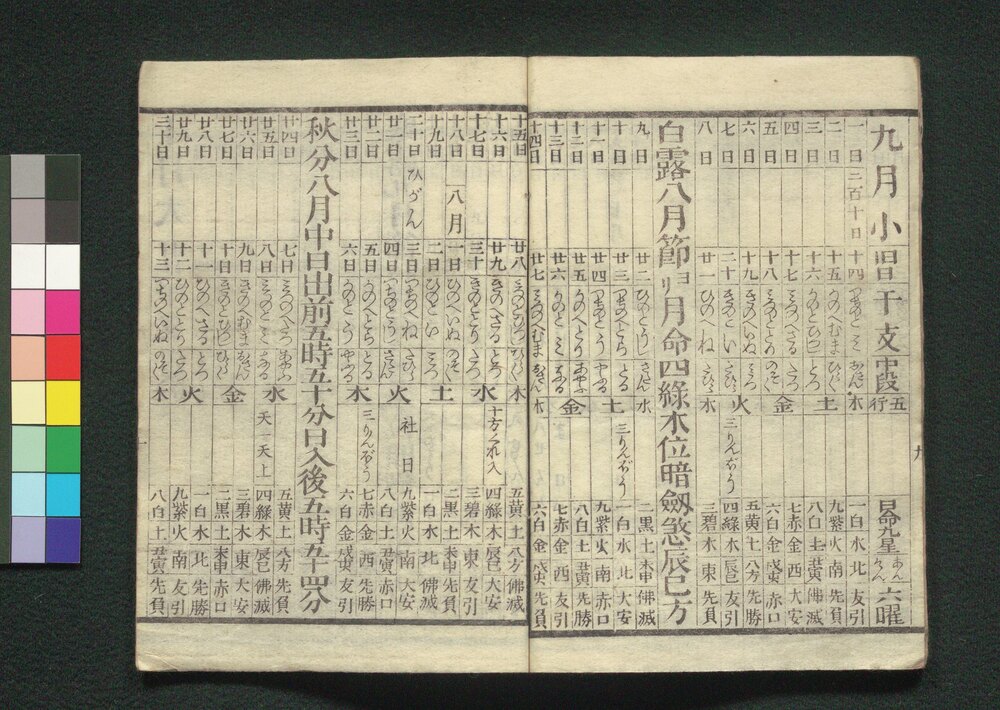 九月小 旧日 干支 中段 五行 日命九星 あんけん 六曜
一日 二百十日 十四日 つちのとミ おさん 木 一白水 北 友引
二日 十五日 かのへむま ひらく 九紫火 南 先負
三日 十六日 かのとひつじ とづ 土 八白土 丑寅 佛滅
四日 十七日 みづのへさる 七赤金 西 大安
五日 十八日 みづのととり のぞく 金 六白金 戌亥 赤口
六日 十九日 きのへいぬ みつ 五黄土 八方 先勝
七日 二十日 きのとい 火 三りんぼう 四綠木 辰巳 友引
八日 廿一日 ひのへね 水 三碧木 東 先負
白露八月節 月命四綠木位暗劔煞辰巳方
九日 廿二日 ひのとうし さだん 水 二黒土 未申 佛滅
十日 廿三日 つちのへとら とる 三りんぼう 一白水 北 大安
十一日 廿四日 つちのとう やぶる 土 九紫火 南 赤口
十二日 廿五日 かのへたつ あやふ 八白土 丑寅 先勝
十三日 廿六日 かのとミ なる 金 七赤金 西 友引
十四日 廿七日 みづのへむま おさん 木 六白金 戌亥 先負
九
十五日 廿八日 みづのとひつじ ひらく 木 五黄土 八方 佛滅
十六日 廿九日 きのへさる とづ 十方くれ入 四綠木 辰巳 大安
十七日 三十日 きのととり たつ 水 三碧木 東 友引
十八日 八月 一日 ひのへいぬ のぞく 二黒土 未申 先負
十九日 二日 ひのとい みつ 土 一白水 北 佛滅
二十日 ひがん 三日 つちのへね 九紫火 南 大安
廿一日 四日 つちのとうし さだん 火 社日 八白土 丑寅 赤口
廿二日 五日 かのへとら とる 三りんぼう 七赤金 西 先勝
廿三日 六日 かのとう やぶる 木 六白金 戌亥 友引
秋分八月中日出前五時五十分日入後五時五十四分
廿四日 七日 みづのへたつ あやふ 五黄土 八方 先負
廿五日 八日 みづのとミ なる 水 天一天上 四綠木 辰巳 佛滅
廿六日 九日 きのへむま おさん 三碧木 東 大安
廿七日 十日 きのとひつじ ひらく 金 二黒土 未申 赤口
廿八日 十一日 ひのへさる とづ 一白水 北 先勝
廿九日 十二日 ひのととり 火 九紫火 南 友引
三十日 十三日 つちのへいぬ のぞく 木 八白土 丑寅 先負